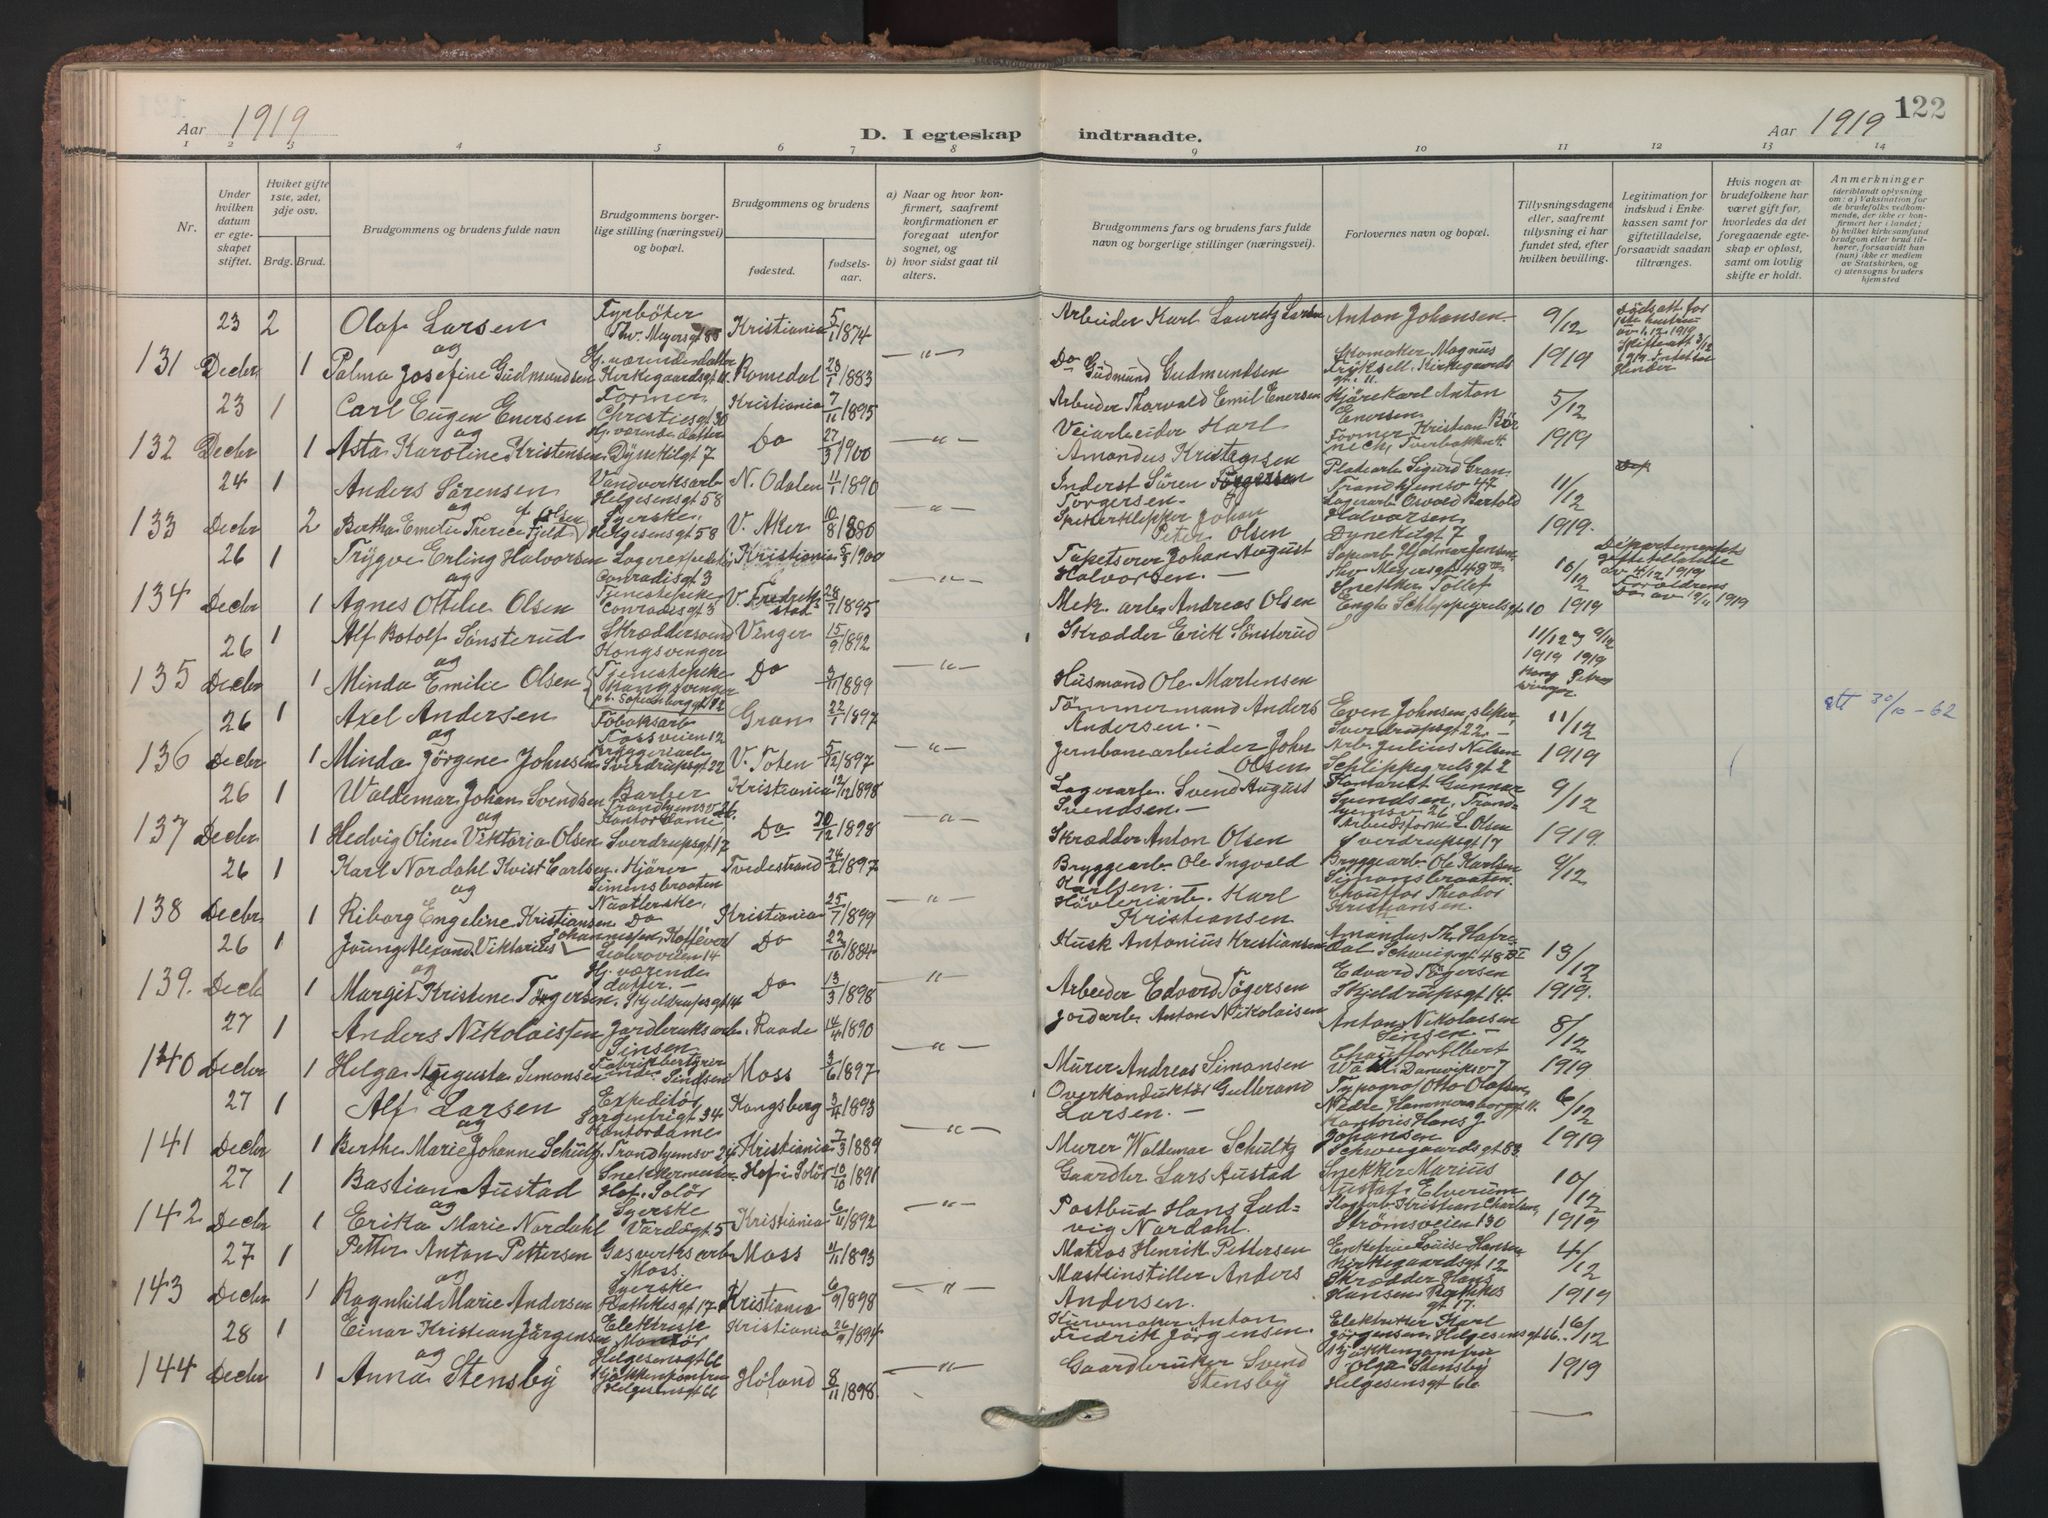 Aar 1919
D. I egteskap indtraadte.
Aar 1919
122
1 2 3 4 5 6 7 8 9 10 11 12 13 14
Nr.
Under hvilken datum er egteskapet stiftet.
Hviket gifte 1ste, 2det, 3dje osv.
Brdg. Brud.
Brudgommens og brudens fulde navn
Brudgommens borgerlige stilling (næringsvei) og bopæl.
Brudgommens og brudens
fødested.
fødselsaar.
a) Naar og hvor konfirmert, saafremt konfirmationen er foregaat utenfor sognet, og
b) hvor sidst gaat til alters.
Brudgommens fars og brudens fars fulde navn og borgerlige stillinger (næringsvei).
Forlovernes navn og bopæl.
Tillysningsdagene eller, saafremt tillysning ei har fundet sted, efter hvilken bevilling.
Legitimation for indskud i Enkekassen samt for giftetilladelse, forsaavidt saadan tiltrænges.
Hvis nogen av brudefolkene har været gift før, hvorledes da det foregaaende egteskap er opløst, samt om lovlig skifte er holdt.
Anmerkninger (deriblandt oplysning om: a) Vaksination for de brudefolks vedkommende, der ikke er konfirmert her i landet; b) hvilket kirkesamfund brudgom eller brud tilhører, forsaavidt han (hun) ikke er medlem av Statskirken, og c) utensogns bruders hjemsted
23 2 Olaf Larsen Fyrböter Thv. Meyersgt 85 Kristiania 5/1 1874 Arbeider Karl Lauretz Larsen Anton Johansen 9/12
131 Decbr 1 og Palma Josefine Gudmundsen Hj. værende datter Kirkegaardsgt 11 Romedal 28/1 1883 — " — Do Gudmund Gudmundsen Skomaker Magnus Fryksell. Kirkegaardsgt. 11. 1919
23 1 Carl Eugen Enersen Former Christiesgt 30 Kristiania 7/11 1895 Arbeider Thorvald Emil Enersen Kjørekarl Anton Enersen 5/12
132 Decbr 1 og Asta Karoline Kristensen Hj. værende datter Dynekilgt 7 Do 27/3 1900 — " — Veiarbeider Karl Amandus Kristensen Former Kristian 1919
24 1 Anders Sörensen Vandverksarb Helgesensgt 58 N. Odalen 11/1 1890 Inderst Sören Torgersen. Pladearb Sigurd Gran Trondhjemsv 47 11/12
133 Decbr 2 og Bertha Emilie Therese Fjeld f. Olsen Syerske. Helgesensgt 58 V. Aker 10/8 1880 — " — Spikerklipper Johan Peter Olsen Lagerarb Osvald Bertold Halvorsen Dynekilgt 7 1919.
26 1 Trygve Erling Halvorsen Lagerexpeditör Conradisgt 3 Kristiania 5/3 1900 Tapetserer Johan August Halvorsen. — Hjalmar Jensen Thv Meyersgt 48 10/12 Departementets giftetilladelse av 4/12 1919
134 Decbr 1 og Agnes Ottilie Olsen Tjenestepike Conradisgt 3 V. Fredrikstad 28/7 1895 — " — Mek. arb. Andreas Olsen Snekker Tollef Engh Schleppegrelsgt 10 1919 Forældrens Do av 19/11 1919
26 1 Alf Botolf Sönsterud Skræddersvend Kongsvinger Vinger 15/9 1892 Skrædder Erik Sönsterud 11/12 og 9/12 1919 1919
135 Decbr 1 og Minda Emilie Olsen Tjenestepike Kongsvinger Do 1889 — " — Husmand Ole Martensen
26 1 Axel Andersen Tobaksarb Fossveien 12 Gran 22/1 1897 Tömmermand Anders Andersen. — Even Johnsen, sliper, Sverdrupsgt 22. — 11/12 att 30/10 – 62
136 Decbr 1 og Minda Jörgine Johnsen Bryggeriarb Sverdrupsgt 22 V. Toten 5/12 1897 — " — Jernbanearbeider John Olsen Arb. Julius Nilsen Schleppegrelsgt 2 1919
26 1 Waldemar Johan Svendsen Barber Trondhjemsv 26. Kristiania 12/12 1898 Lagerarb. Svend August Svendsen. — Kontorist Gunnar Svendsen. Trondhjemsv 26 9/12
137 Decbr 1 og Hedvig Oline Viktoria Olsen Kontordame Sverdrupsgt 17 Do 20/2 1898 — " — Skrædder Anton Olsen Arbeidsform L. Olsen Sverdrupsgt 17 1919.
26 1 Karl Nordahl Kvist Carlsen Kjörer Simensbraaten Tvedestrand 24/2 1897 Bryggearb Ole Ingvald Karlsen. Bryggearb Ole Karlsen Simensbraaten. 9/12
138 Decbr 1 og Riborg Engeline Kristiansen Do Kristiania 25/7 1899 — " — Hövleriarb. Karl Kristiansen Chauffør Theodor Kristiansen.
26 1 Johannesen Do 22/10 1884 Kusk Antonius Kristiansen Amandus Th. 13/12
139. Decbr 1 og Margit Kristine Tögersen Hj. værende datter. — Skjeldrupsgt 14 Do 13/3 1898 — " — Arbeider Edvard Tögersen Edvard Tögersen Skjeldrupsgt 14. 1919.
27 1 Anders Nikolaisen Jordbruksarb. Sinsen Raade 14/4 1890 Jordarb Anton Nikolaisen Anton Nikolaisen Sinsen. — 8/12
140 Decbr 1 Helga Augusta Simonsen Moss 3/6 1897 — " — Murer Andreas Simonsen Chauffør Albert 1919
27 1 Alf Larsen Expeditör Sorgenfrigt 34 Kongsberg 3/4 1893 Overkonduktör Gulbrand Larsen. — Typograf Otto Olafsen, Nedre Hammersborggt 11. 6/12
141 Decbr 1 og Berthe Marie Johanne Schultz Kontordame Trondhjemsv 24 Kristiania 7/3 1889 — " — Murer Waldemar Schultz Kontorist Hans J Johansen Schweigaardsgt 83. 1919
27 1 Bastian Austad Snekkermester Hof, Solör Hof i Solör 10/10 1891 Gaardbr Lars Austad Snekker Marius Austad, Elverum 10/12
142 Decbr 1 og Erika Marie Nordahl Syerske Vardögt 5 Kristiania 6/11 1892 — " — Postbud Hans Ludvig Nordahl. Strömsveien 130 1919
27 1 Petter Anton Pettersen Gasverksarb Moss. Moss 4/11 1893 Matros Henrik Pettersen Enkefrue Louise Hansen, Kirkegaardsgt 12 4/12
143 Decbr 1 og Ragnhild Marie Andersen Syerske Rathkesgt 17 Kristiania 6/9 1898 — " — Maskinstiller Anders Andersen. Skrædder Hans Hansen Rathkesgt 17. 1919
28 1 Einar Kristian Jörgensen Elektrisk Montör Helgesensgt 66 Kristiania 26/9 1894 Kurvmaker Anton Fredrik Jörgensen. Elektriker Karl Jörgensen, Helgesensgt 66. 16/12
144 Decbr 1 og Anna Stensby Kjökkenjomfru Helgesensgt 66 Höland 8/11 1898 — " — Gaardbruker Svend Stensby Kjökkenjomfru Olga Stensby Helgesensgt 66 1919